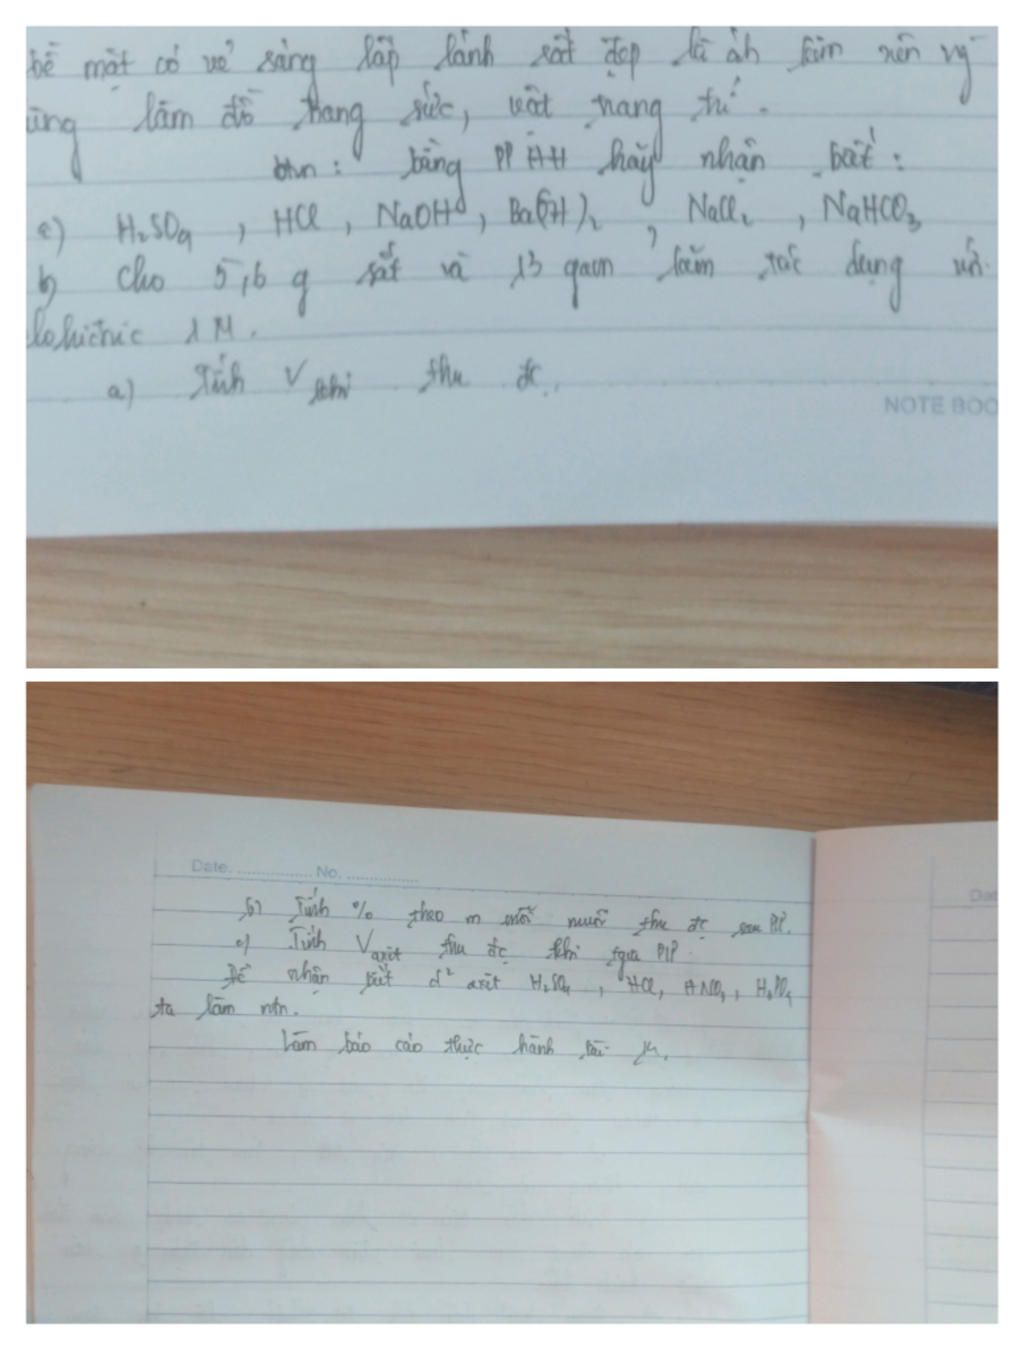 bề mặt có vẻ sáng lấp lánh rất đẹp là ah kim nên vỹ
ùng làm đồ trang sức, vật trang trí.
btvn: bằng PP HH hãy nhận biết:
c) H₂SO₄, HCl, NaOH, Ba(OH)₂, NaCl, NaHCO₃
b) Cho 5,6 g sắt và 13 gam kẽm tác dụng với
clohiđric 1M.
a) Tính V khí thu đc.
NOTE BOO
Date. No.
b) Tính % theo m mỗi muối thu đc sau PƯ.
c) Tính V axit thu đc khi tgia PƯ.
Để nhận biết d² axit H₂SO₄, HCl, HNO₃, H₃PO₄
ta làm ntn.
Làm báo cáo thực hành bài 14.
Dat